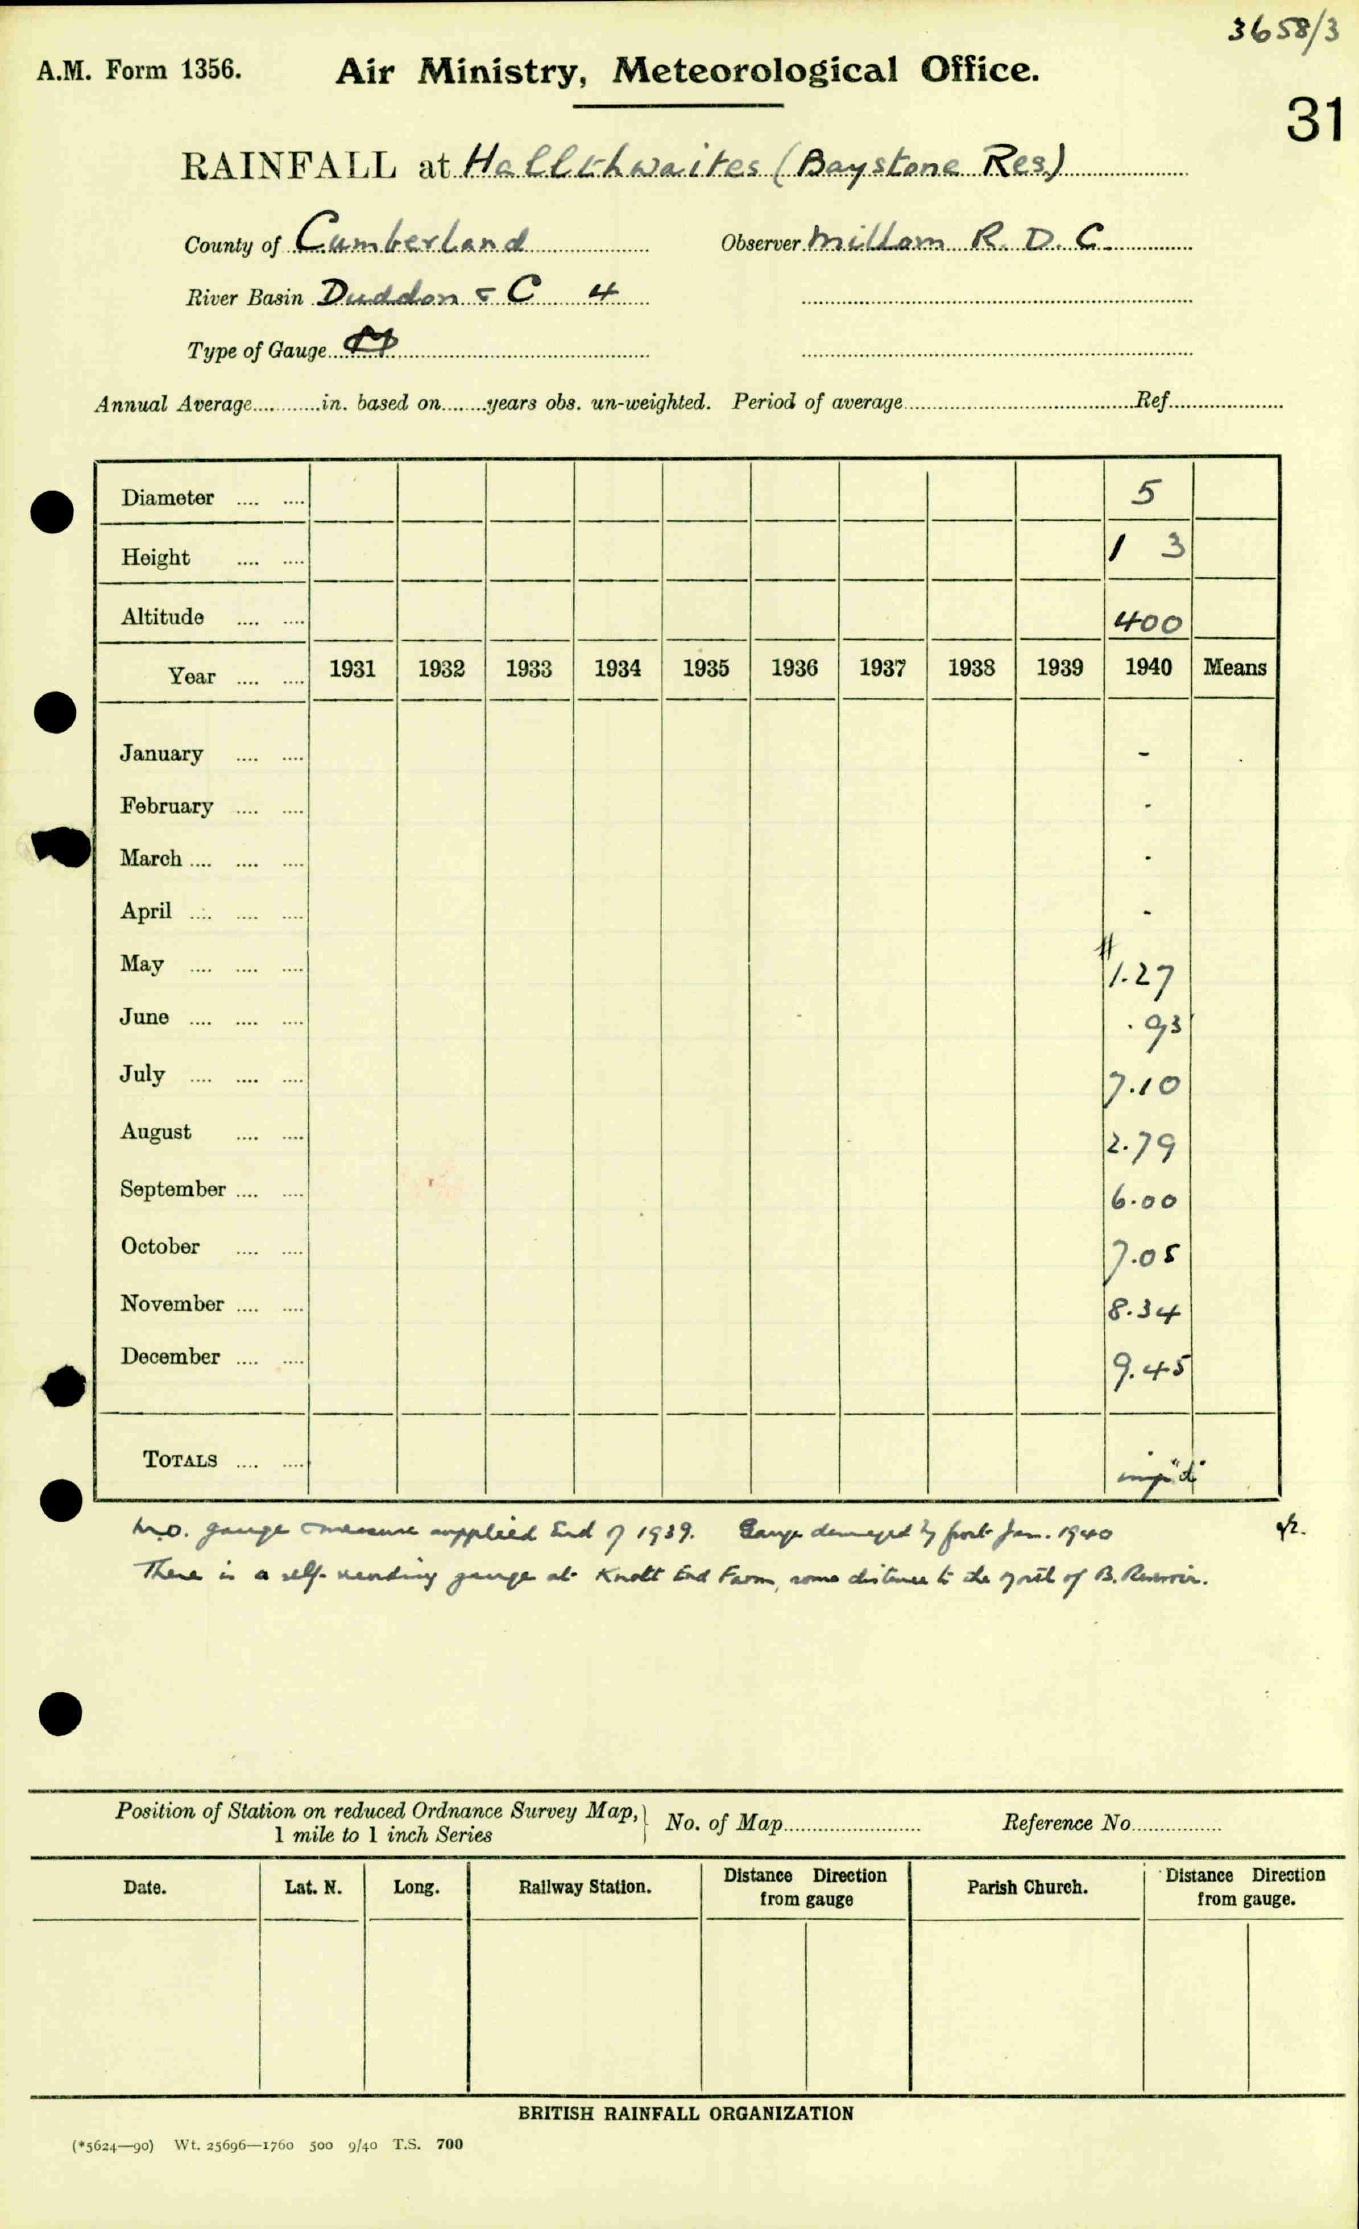 3658/3
A.M. Form 1356. Air Ministry, Meteorological Office.
31
RAINFALL at Hallthwaites (Baystone Res)
County of Cumberland Observer Millom R. D. C.
River Basin Duddon & C 4
Type of Gauge
Annual Average............in. based on........years obs. un-weighted. Period of average........Ref........
Diameter .... .... 5
Height .... .... 1 3
Altitude .... .... 400
Year .... .... 1931 1932 1933 1934 1935 1936 1937 1938 1939 1940 Means
January .... .... -
February .... .... -
March .... .... .... -
April .... .... .... -
May .... .... .... # 1.27
June .... .... .... .93
July .... .... .... 7.10
August .... .... 2.79
September .... .... 6.00
October .... .... 7.05
November .... .... 8.34
December .... .... 9.45
TOTALS .... .... imp"d"
M.O. gauge & measure supplied End of 1939. Gauge damaged by frost Jan. 1940
There is a self-recording gauge at Knott End Farm, some distance to the north of B. Reservoir.
Position of Station on reduced Ordnance Survey Map, 1 mile to 1 inch Series No. of Map........ Reference No........
Date. Lat. N. Long. Railway Station. Distance Direction from gauge Parish Church. Distance Direction from gauge.
BRITISH RAINFALL ORGANIZATION
(*5624—90) Wt. 25696—1760 500 9/40 T.S. 700